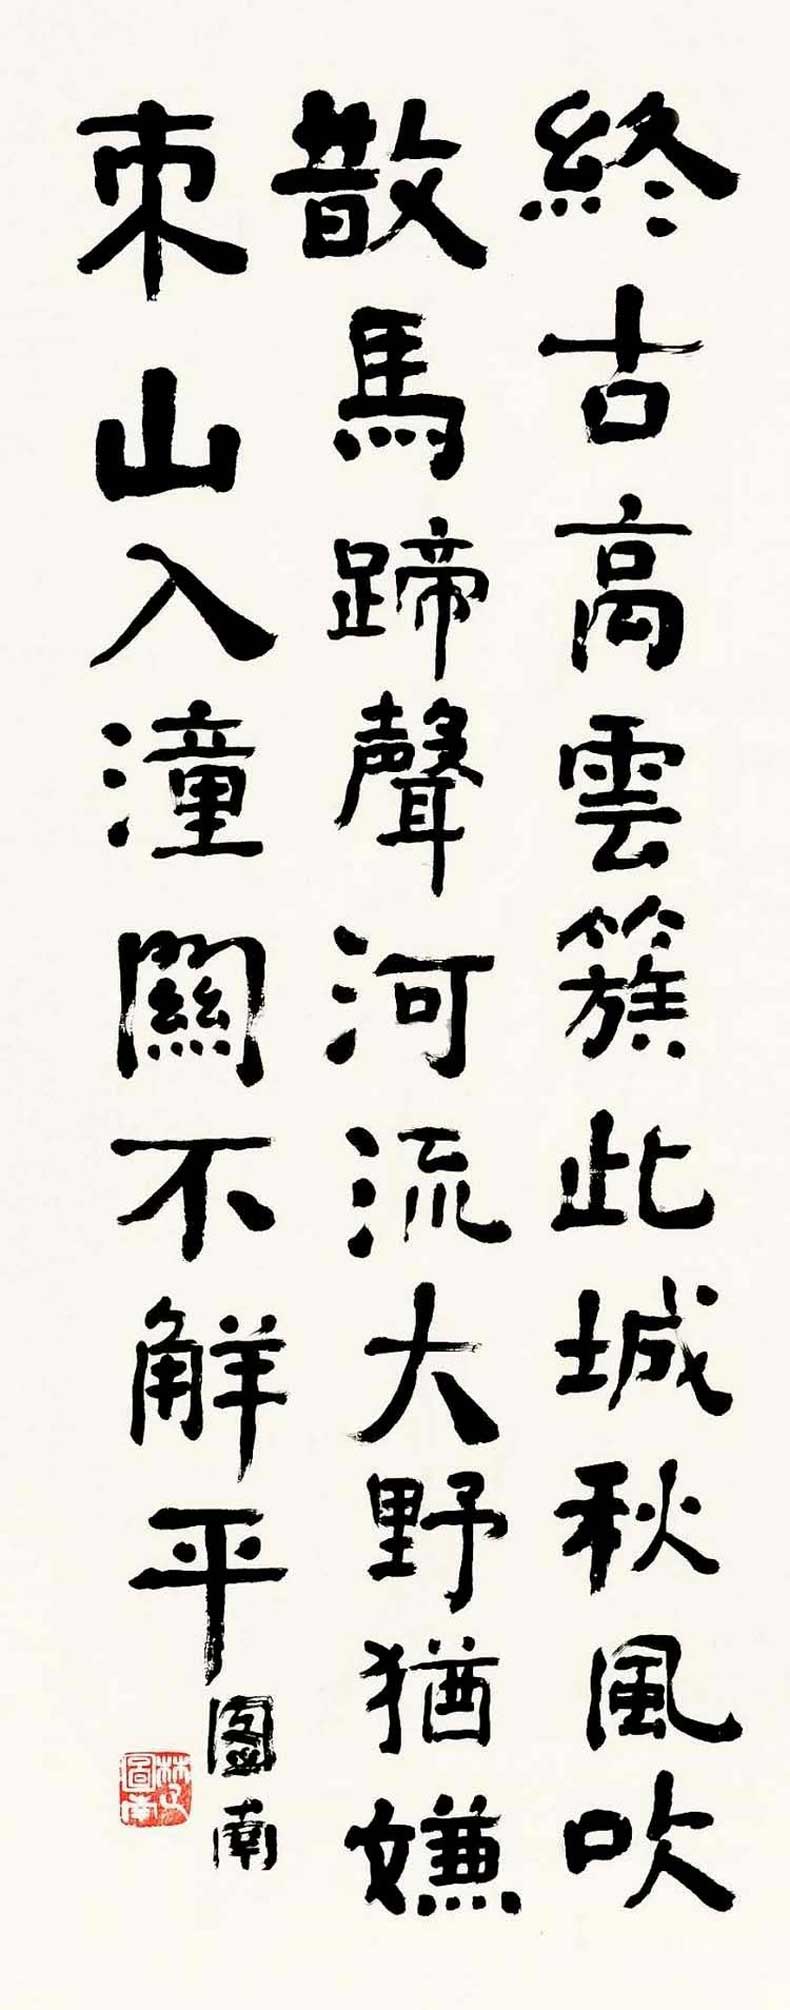 終古高雲簇此城秋風吹
散馬蹄聲河流大野猶嫌
束山入潼關不解平
圖南
林子
圖南